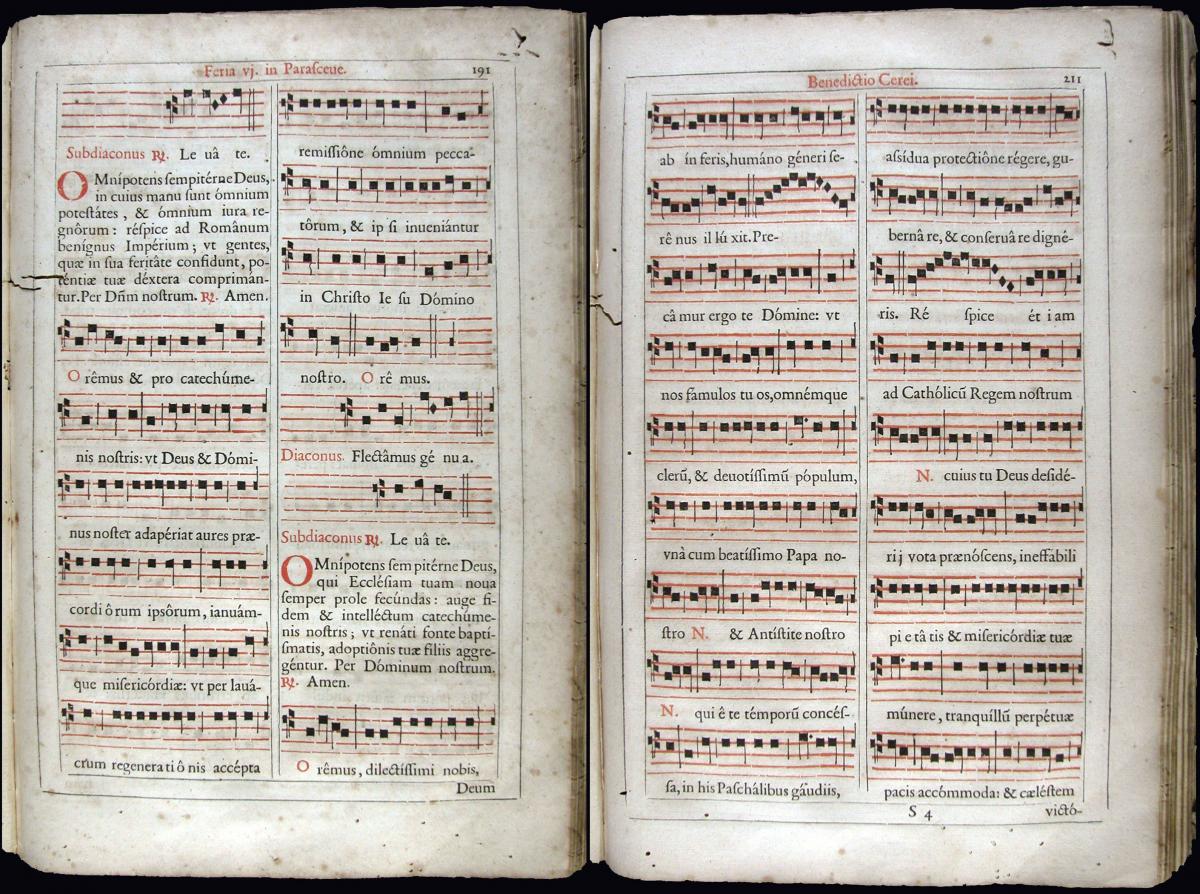 Feria vj. in Parasceue.
191
Subdiaconus ℟. Le uâ te.
OMnípotens sempitérne Deus,
in cuius manu sunt ómnium
potestátes, & ómnium iura re-
gnôrum: réspice ad Românum
benígnus Impérium; vt gentes,
quæ in sua feritâte confidunt, po-
téntiæ tuæ déxtera comprimán-
tur. Per Dñm nostrum. ℟. Amen.
O rêmus & pro catechúme-
nis nostris: vt Deus & Dómi-
nus noster adapériat aures præ-
cordi ôrum ipsôrum, ianuám-
que misericórdiæ: vt per lauá-
crum regenera ti ô nis accépta
remissiône ómnium pecca-
tôrum, & ip si inueniántur
in Christo Ie su Dómino
nostro. O rê mus.
Diaconus. Flectâmus gé nu a.
Subdiaconus ℟. Le uâ te.
OMnípotens sem pitérne Deus,
qui Ecclésiam tuam noua
semper prole fecúndas: auge fi-
dem & intelléctum catechúme-
nis nostris; vt renáti fonte baptí-
smatis, adoptiônis tuæ filiis aggre-
géntur. Per Dóminum nostrum.
℟. Amen.
O rêmus, dilectíssimi nobis,
Deum
Benedictio Cerei.
211
ab ín feris, humáno géneri se-
rê nus il lú xit. Pre-
câ mur ergo te Dómine: vt
nos famulos tu os, omnémque
clerũ, & deuotíssimũ pópulum,
vnà cum beatíssimo Papa no-
stro N. & Antístite nostro
N. qui ê te témporũ concés-
sa, in his Paschálibus gáudiis,
assídua protectiône régere, gu-
bernâ re, & conseruâ re digné-
ris. Ré spice ét i am
ad Cathólicũ Regem nostrum
N. cuius tu Deus desidé-
ri j vota prænóscens, ineffabili
pi e tâ tis & misericórdiæ tuæ
múnere, tranquíllũ perpétuæ
pacis accómmoda: & cæléstem
S 4
victó-